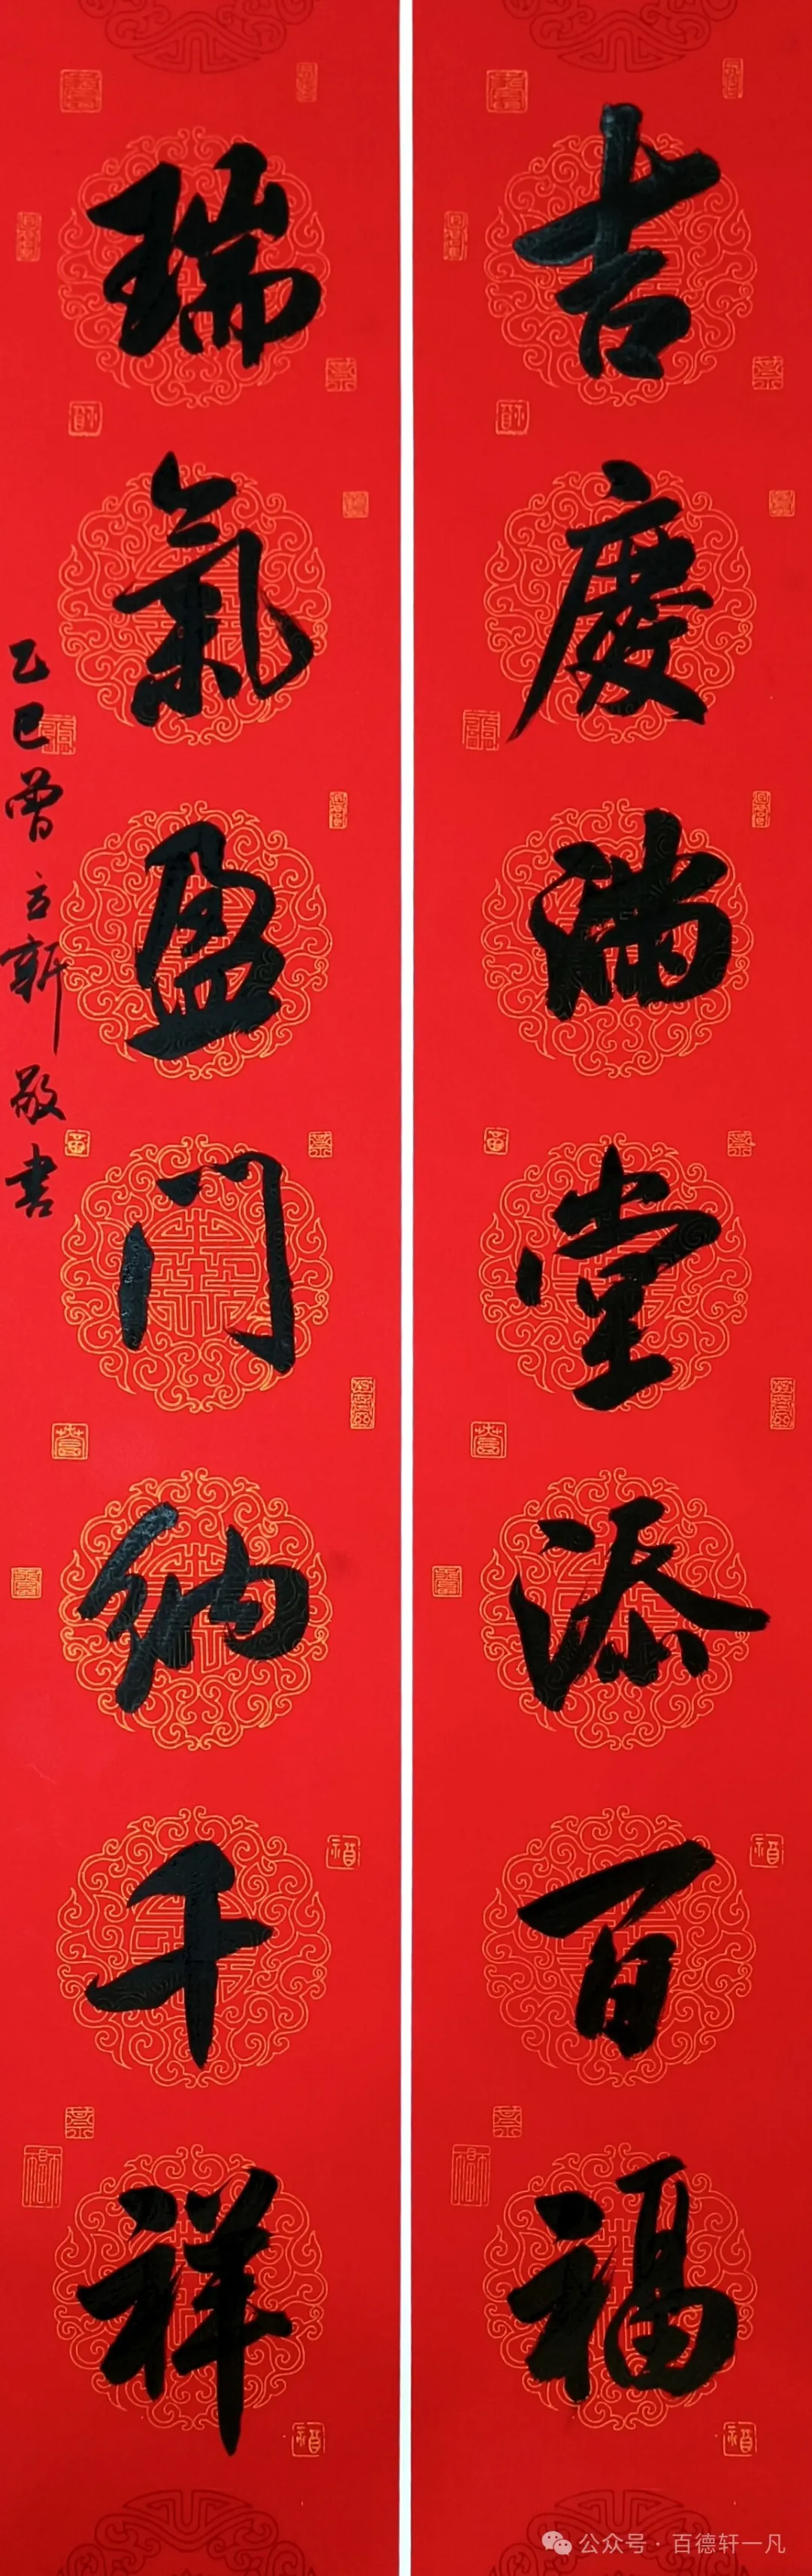 吉慶滿堂添百福
瑞氣盈门納千祥
乙巳曾立新敬書
公众号·百德轩一凡